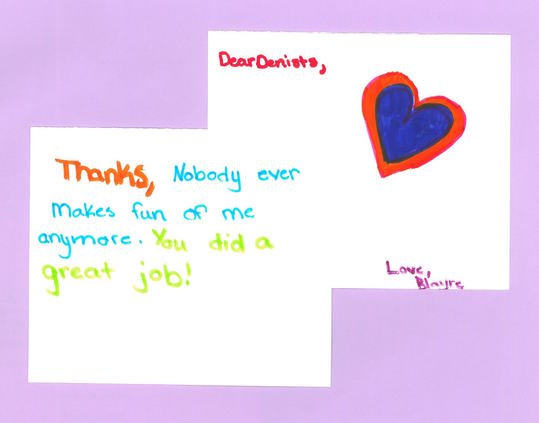 Dear Denists,
Thanks, Nobody ever
makes fun of me
anymore. You did a
great job!
Love,
Blayre